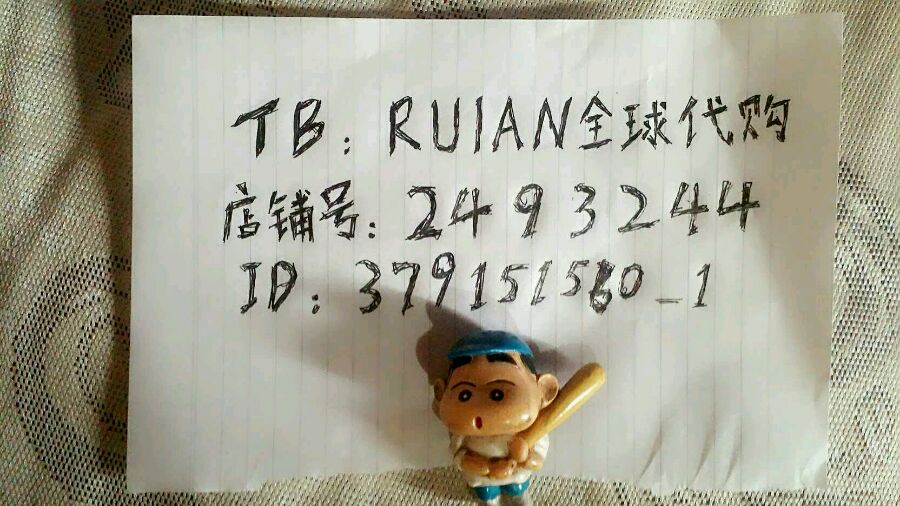 TB: RUIAN全球代购
店铺号: 24932444
ID: 379151560_1